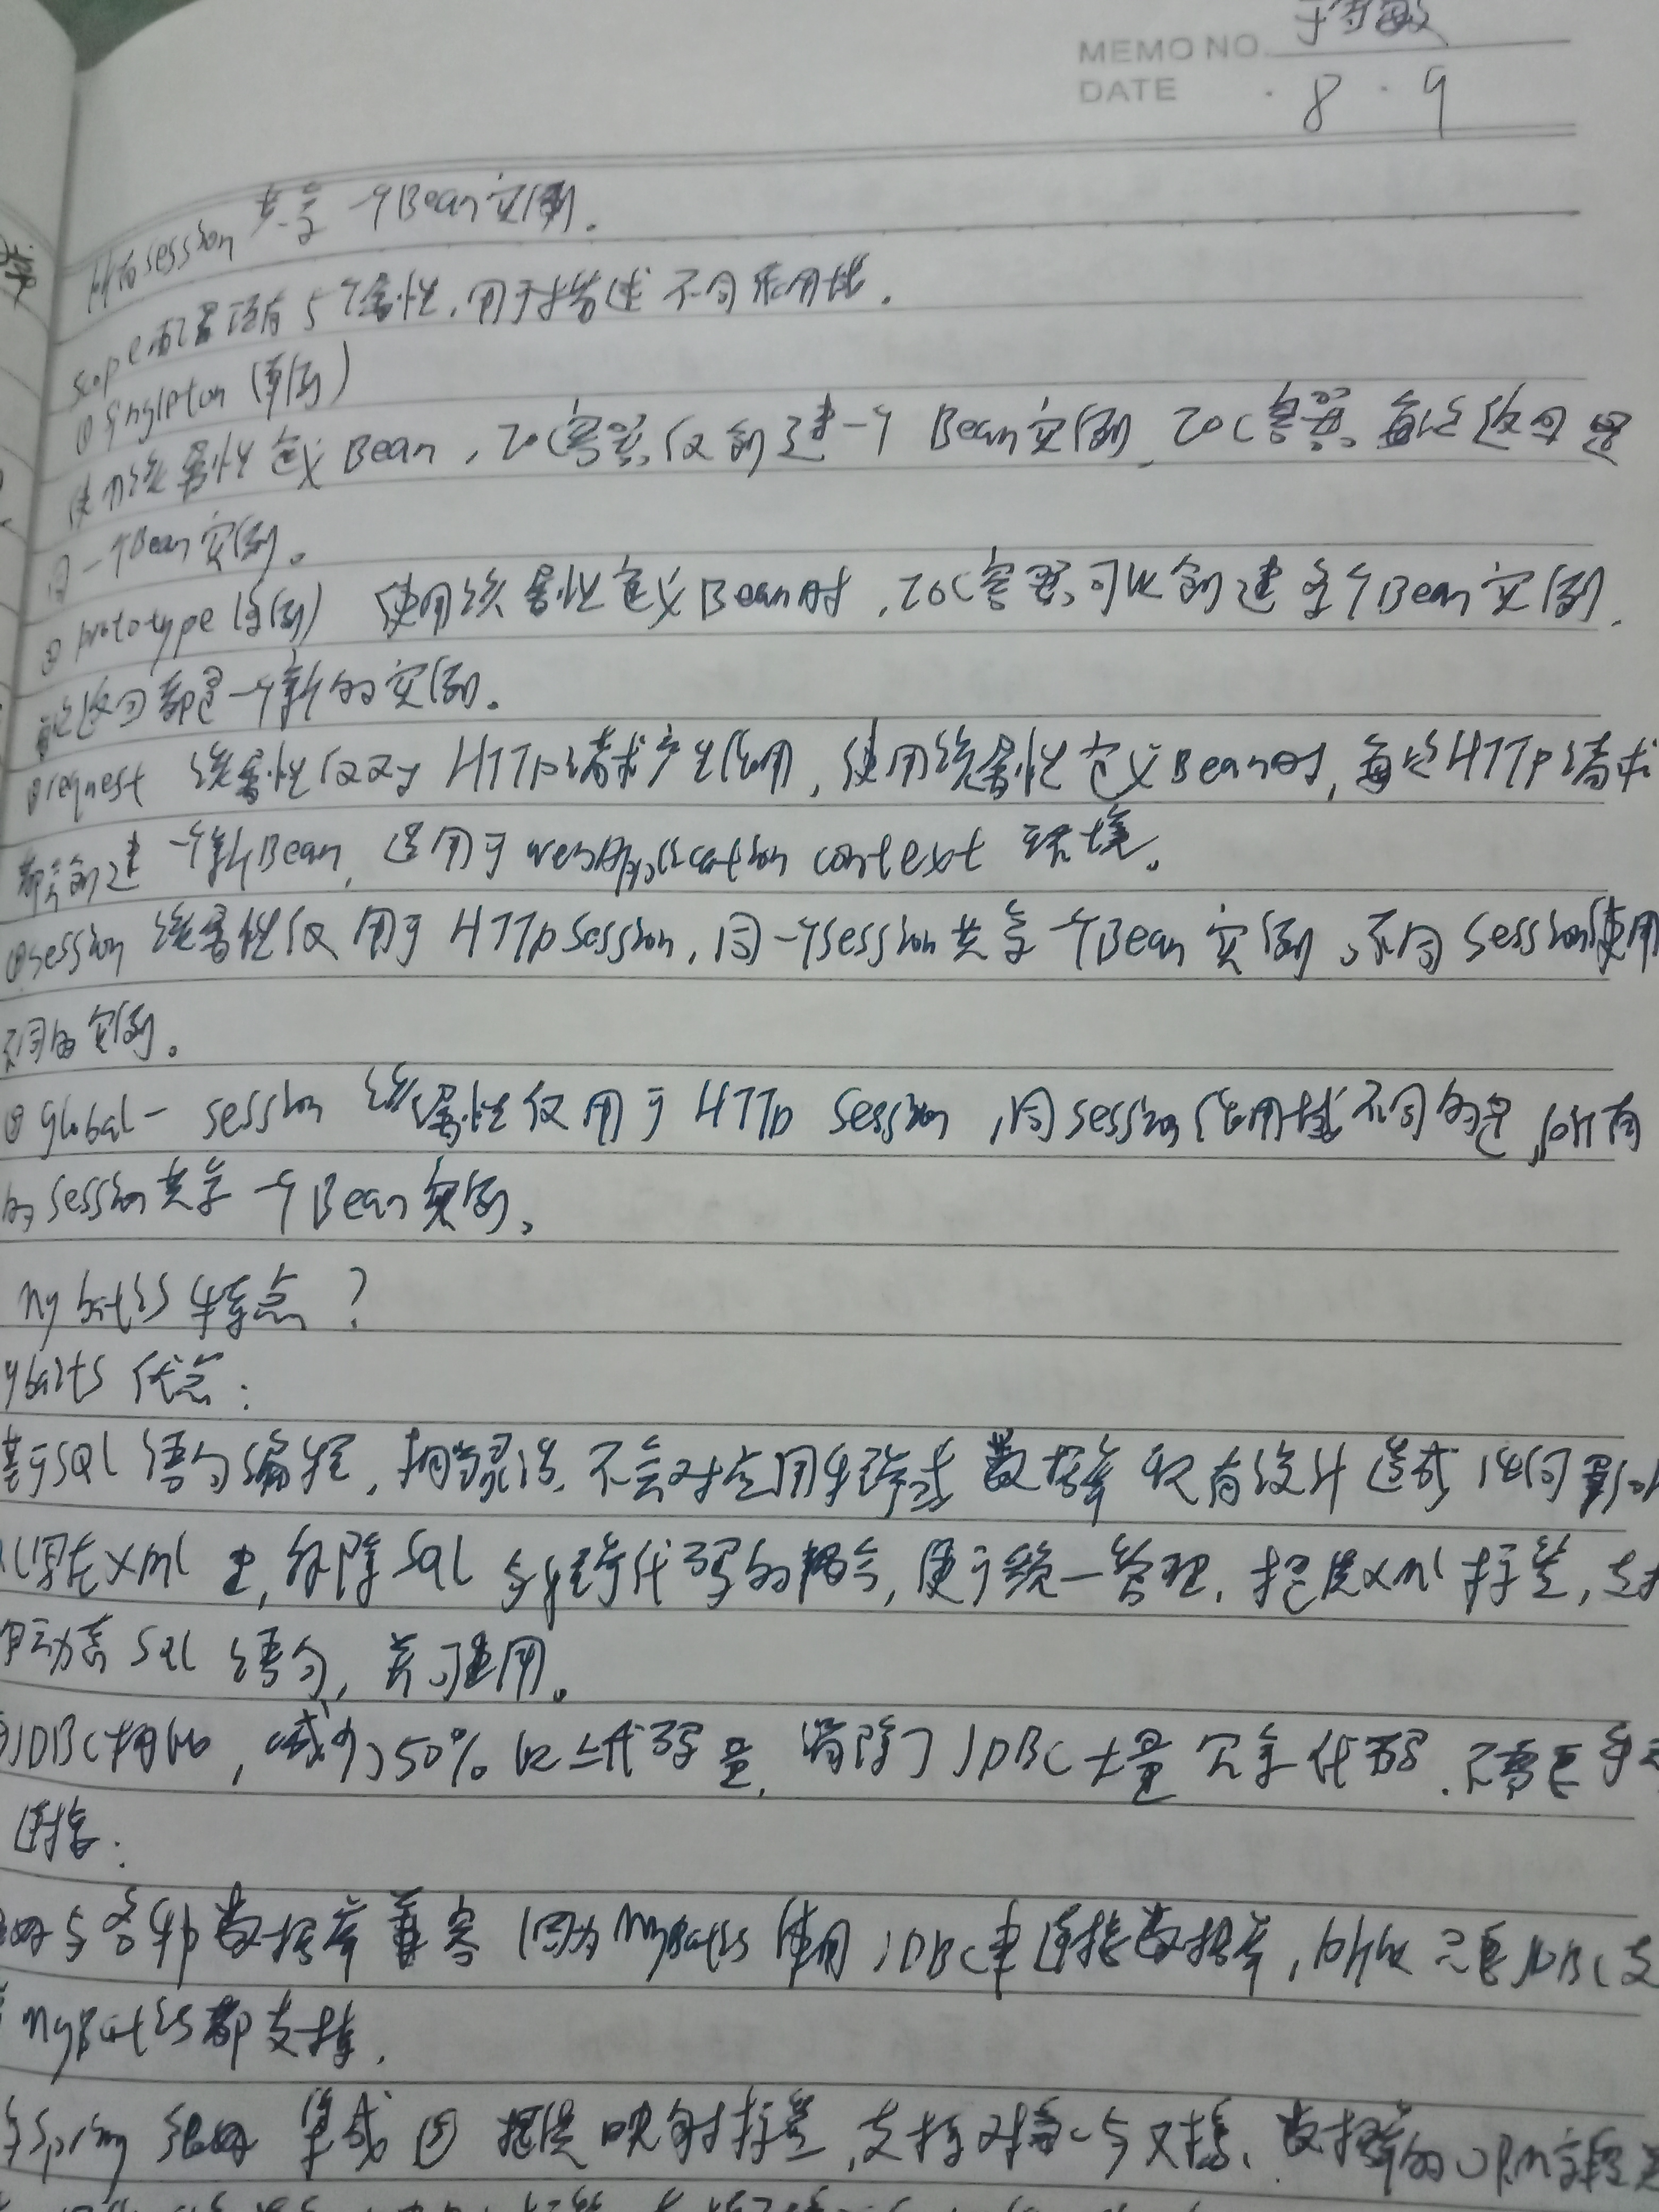 MEMO NO.
DATE · 8 · 9
所有session共享一个Bean实例.
scope配置项有5个属性,用于描述不同作用域.
① singleton (单例)
使用该属性定义Bean,IOC容器仅创建一个Bean实例,IOC容器每次返回是
同一个Bean实例。
② prototype (多例) 使用该属性定义Bean时,IOC容器可以创建多个Bean实例.
每次返回都是一个新的实例。
③request 该属性仅对HTTP请求产生作用,使用该属性定义Bean时,每次HTTP请求
都会创建一个新Bean,适用于webApplication context 环境。
④session 该属性仅用于HTTP Session,同一个Session共享一个Bean实例、不同Session使用
不同的实例。
⑤ global- session 该属性仅用于HTTP Session,同session作用域不同的是,所有
的session共享一个Bean实例。
mybatis特点?
ybaits优点:
基于SQL语句编程,相当灵活,不会对应用程序或数据库现有设计造成任何影
写在xml里,解除sql与程序代码的耦合,便于统一管理.提供xml标签,支
动态Sql语句,并可重用。
JDBC相比,减少了50%以上代码量,消除了JDBC大量冗余代码.不需要手
连接:
与各种数据库兼容(因为MyBatis使用JDBC来连接数据库,所以只要JDBC支
MyBatis都支持.
与Spring很好集成 ⑤ 提供映射标签,支持对象与 数据库的ORM字段